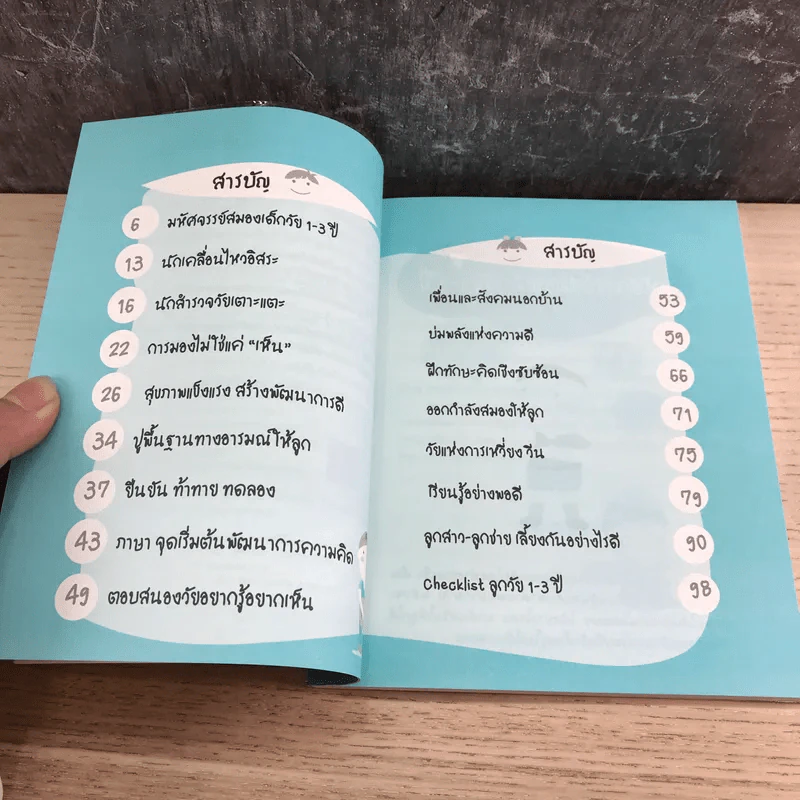 สารบัญ
6 มหัศจรรย์สมองเด็กวัย 1-3 ปี
13 นักเคลื่อนไหวอิสระ
16 นักสำรวจวัยเตาะแตะ
22 การมองไม่ใช่แค่ “เห็น”
26 สุขภาพแข็งแรง สร้างพัฒนาการดี
34 ปูพื้นฐานทางอารมณ์ให้ลูก
37 ยืนยัน ท้าทาย ทดลอง
43 ภาษา จุดเริ่มต้นพัฒนาการความคิด
49 ตอบสนองวัยอยากรู้อยากเห็น
สารบัญ
เพื่อนและสังคมนอกบ้าน 53
บ่มพลังแห่งความดี 59
ฝึกทักษะคิดเชิงซับซ้อน 66
ออกกำลังสมองให้ลูก 71
วัยแห่งการเหวี่ยง วีน 75
เรียนรู้อย่างพอดี 79
ลูกสาว-ลูกชาย เลี้ยงกันอย่างไรดี 90
Checklist ลูกวัย 1-3 ปี 98